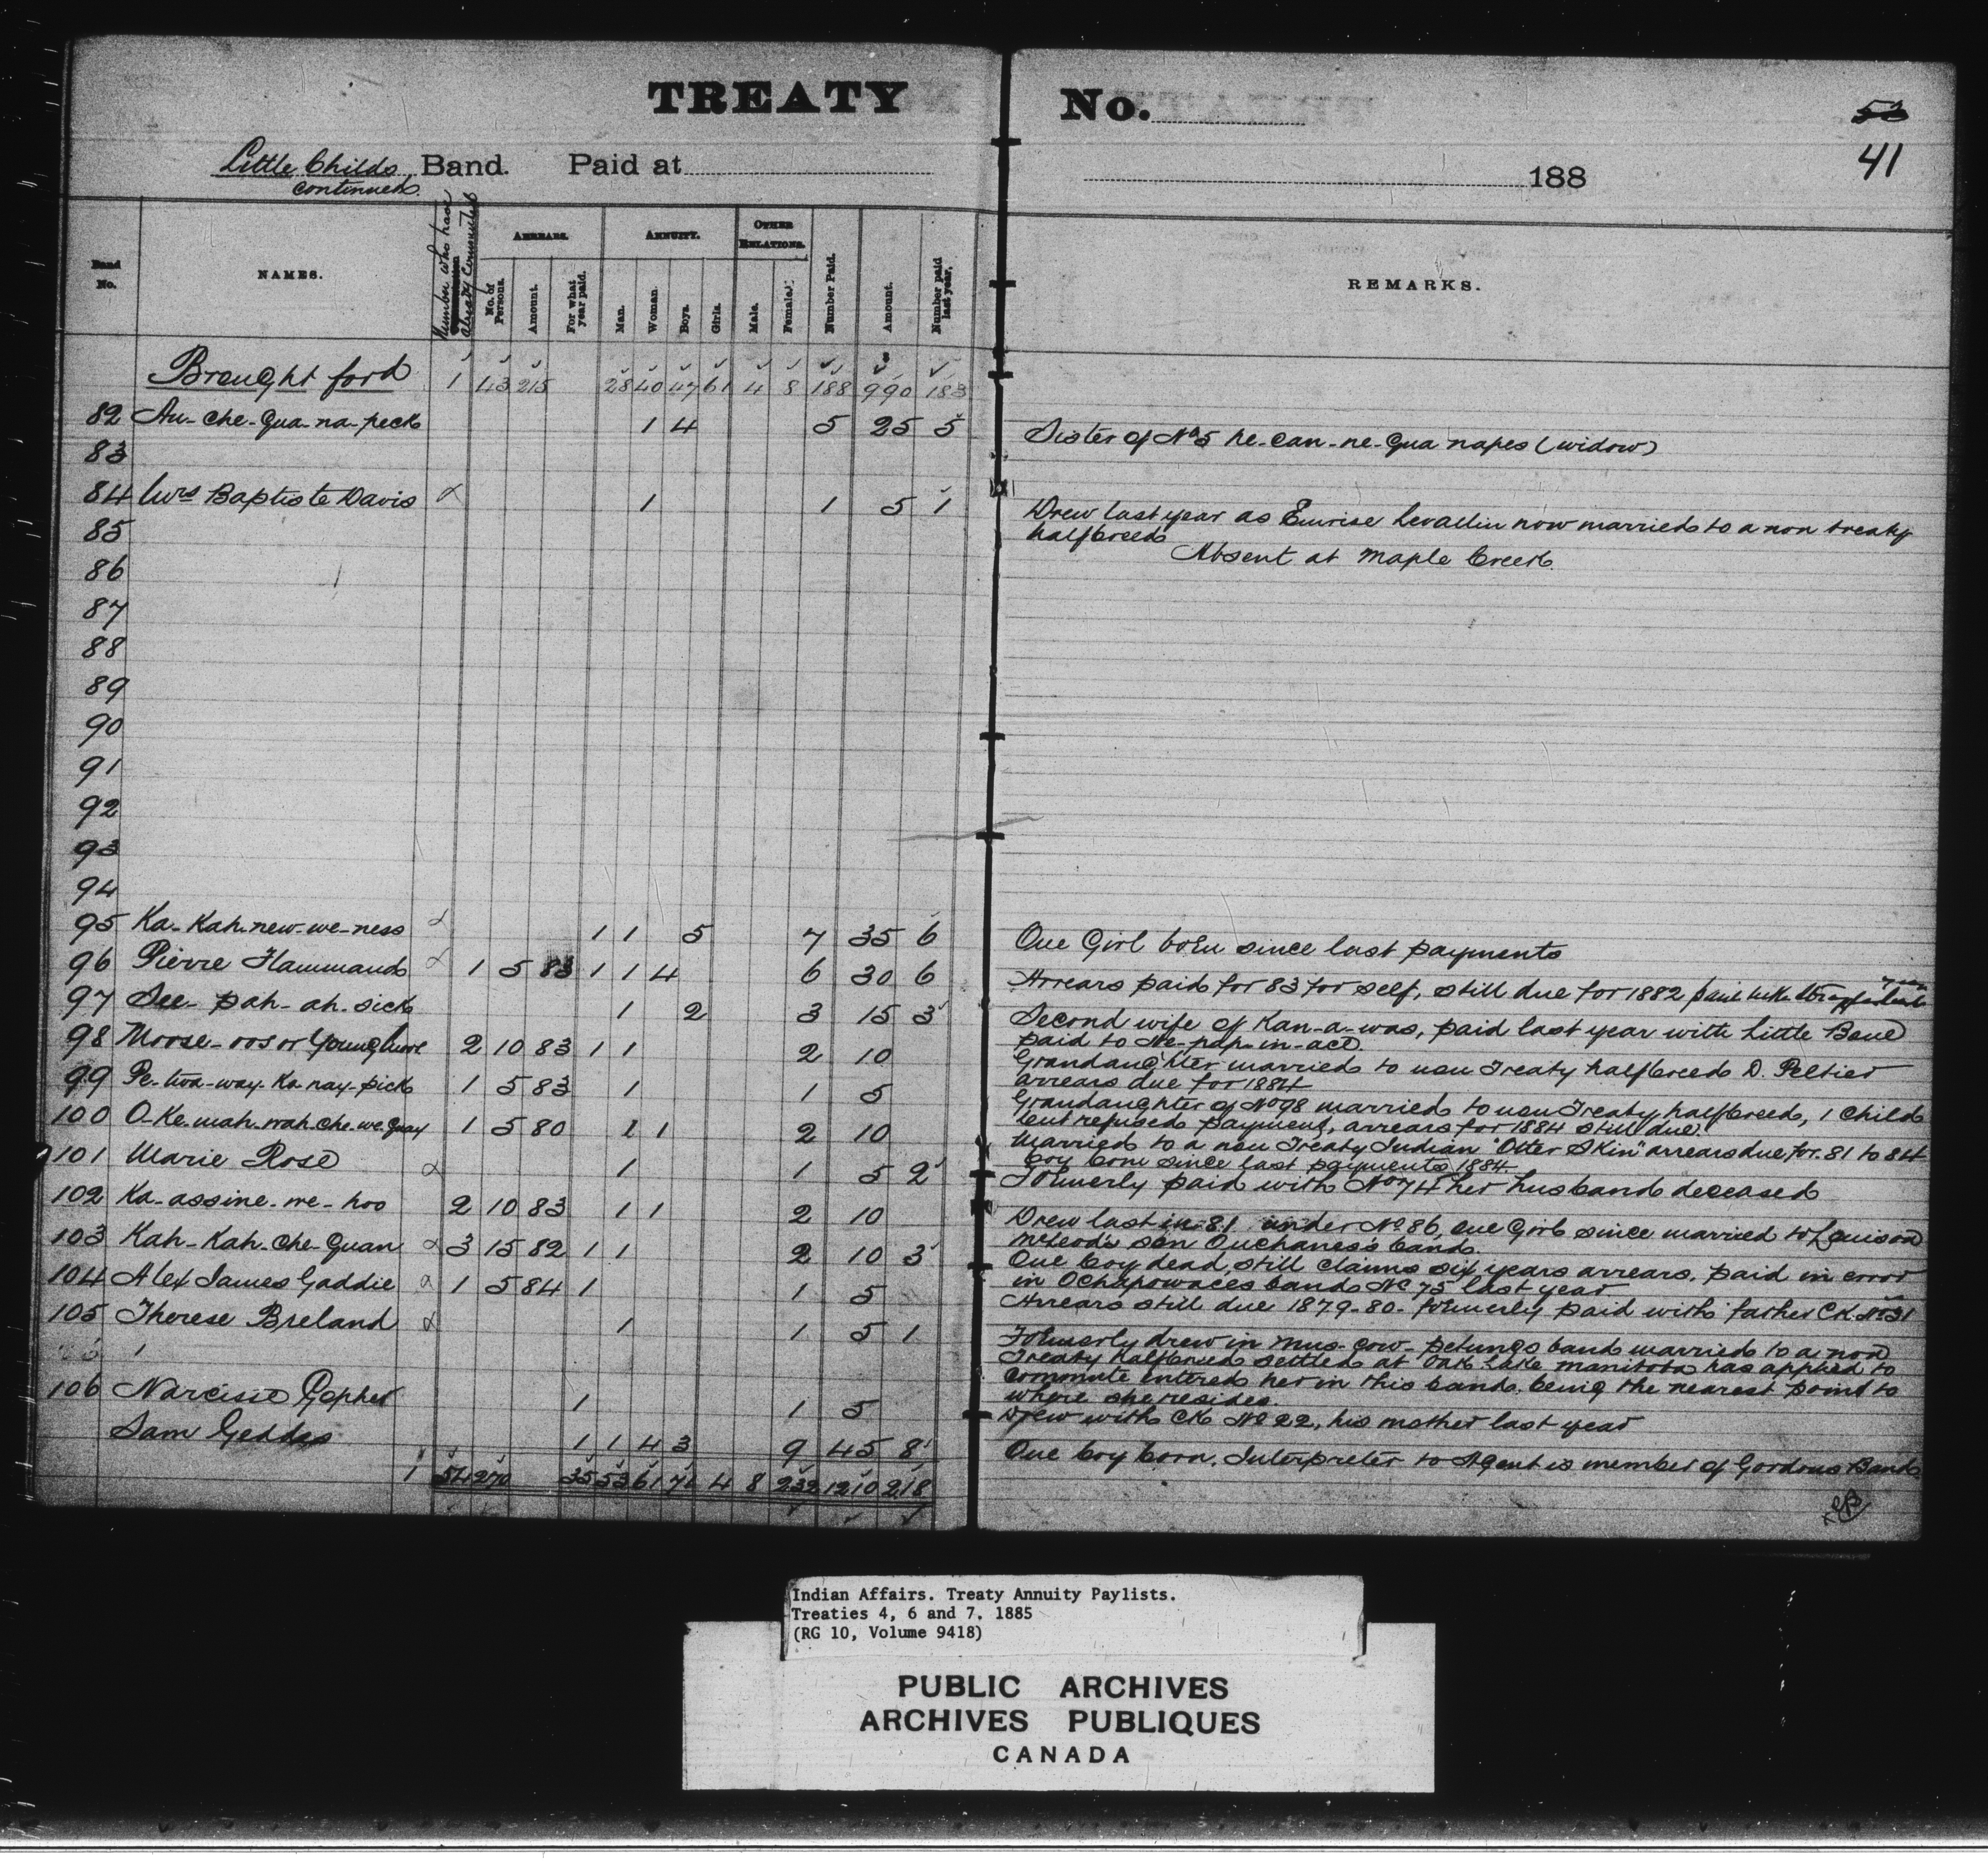 TREATY No. 53
41
Little Childs Band. Paid at 188
continued
Band No. NAMES. Number who have already commuted ARREARS. No. of Persons. Amount. For what year paid. ANNUITY. Man. Woman. Boys. Girls. OTHER RELATIONS. Male. Female. Number Paid. Amount. Number paid last year. REMARKS.
Brought ford 1 43 215 28 40 47 61 4 8 188 990 183
82 Au-che-qua-na-peck 1 4 5 25 5 Sister of No 5 ne-can-ne-qua napes (widow)
83
84 Mrs Baptiste Davis 1 1 5 1 Drew last year as Levallin now married to a non treaty
halfbreed
85 Absent at Maple Creek.
86
87
88
89
90
91
92
93
94
95 Ka-Kah-new-we-ness 1 1 5 7 35 6 One Girl born since last payments
96 Pierre Flammand 1 5 83 1 1 4 6 30 6 Arrears paid for 83 for self, still due for 1882
97 See-pah-ah-sick 1 2 3 15 3 Second wife of Kan-a-was, paid last year with Little Bone
98 Moose-oos or Young Moose 2 10 83 1 1 2 10 paid to
Grandaughter married to non Treaty halfbreed D. Peltier
99 Pe-twa-way-ka-nay-pick 1 5 83 1 1 5 arrears due for 1884
Grandaughter of No 98 married to non Treaty halfbreed, 1 child
100 O-Ke-mah-wah-che-we-quay 1 5 80 1 1 2 10 but refused payment, arrears for 1884 still due.
Married to a non Treaty Indian "Otter Skin" arrears due for 81 to 84
101 Marie Rose 1 1 5 2 boy born since last payments 1884.
Formerly paid with No 74 her husband deceased
102 Ka-assine-we-hoo 2 10 83 1 1 2 10 Drew last in 81 under No 86, one Girl since married to Louison
McLeod's son Ouchaness's band.
103 Kah-Kah-che-quan 3 15 82 1 1 2 10 3 One boy dead, still claims six years arrears. paid in error
in Ochapowaces band No 75 last year
104 Alex James Gaddie 1 5 84 1 1 5 Arrears still due 1879-80- formerly paid with father CK. No 31
105 Therese Breland 1 1 5 1 Formerly drew in Mus-cow-petungs band married to a non
Treaty halfbreed settled at Oak Lake Manitoba has applied to
commute entered her in this band, being the nearest point to
where she resides.
106 Narcisse Gopher 1 1 5 Drew with CK No 22, his mother last year
Sam Geddes 1 1 4 3 9 45 8 One boy born. Interpreter to Agent is member of Gordons Band
1 54 270 35 53 61 71 4 8 232 1210 218
Indian Affairs. Treaty Annuity Paylists.
Treaties 4, 6 and 7, 1885
(RG 10, Volume 9418)
PUBLIC ARCHIVES
ARCHIVES PUBLIQUES
CANADA